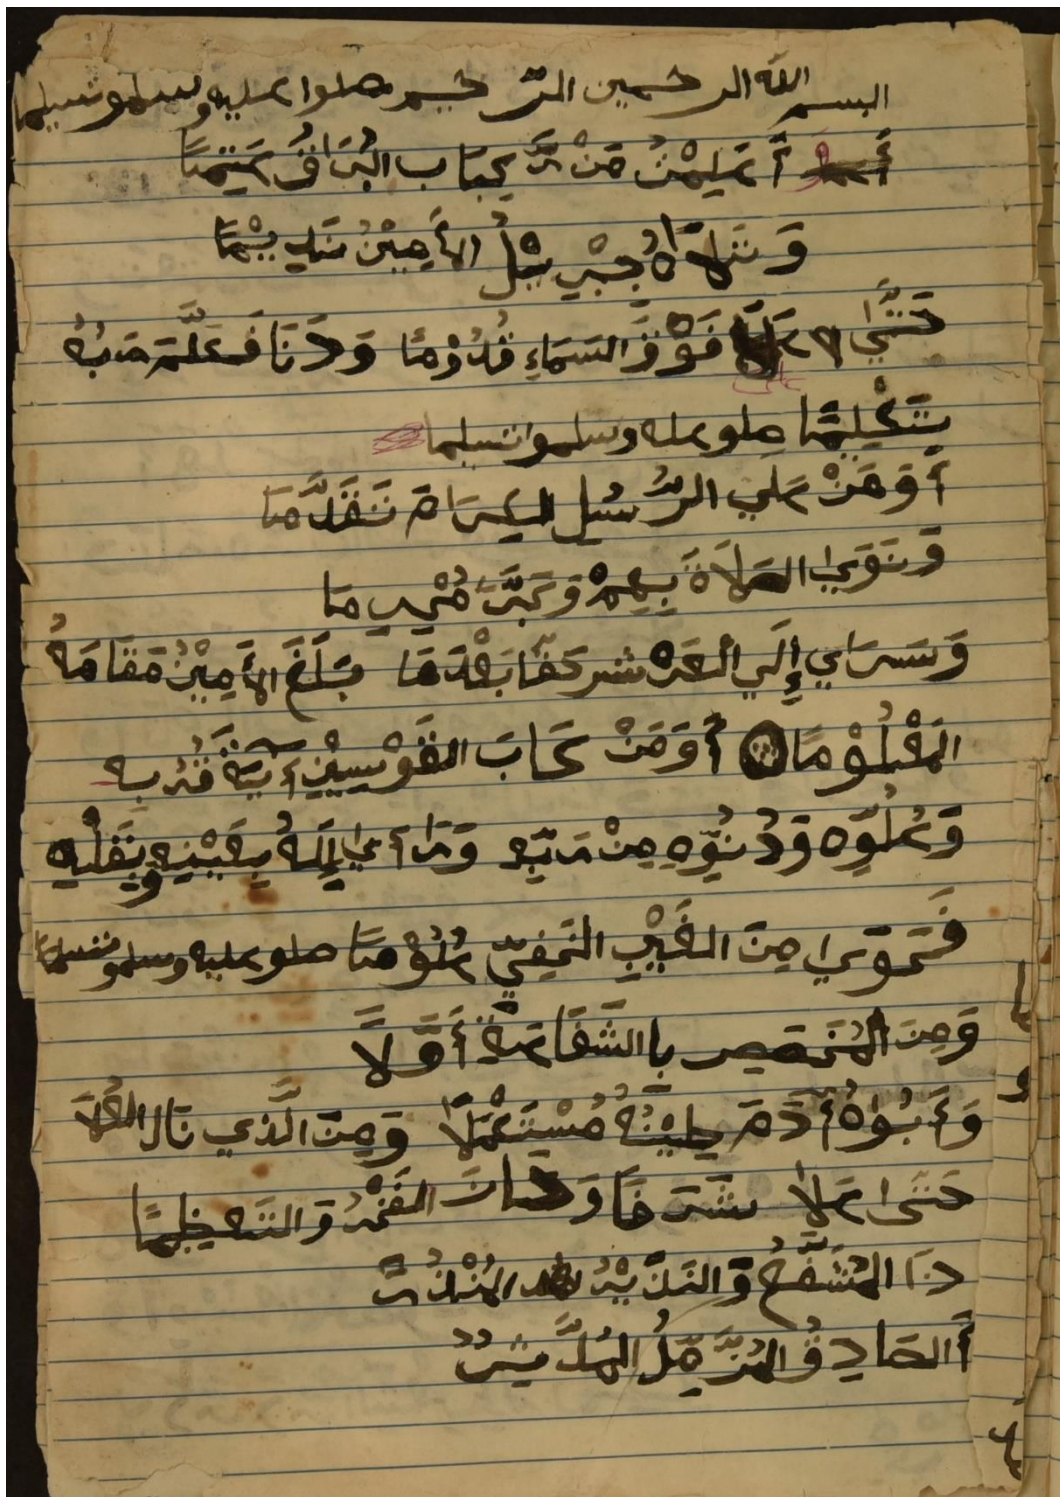 البسم الله الرحمين الرحيم صلوا عليه وسلمو تسليما
أَعَلِمْتُ مَنْ رَّكِبَا ب البُرَاقُ عَتِيمَا
وَتَلَاهُ جِبْرِيْلُ الأَمِيْنُ نَدِيْمَا
حَتَّى عَلَا فَوْقَ السَمَاءِ قُدُوْمًا وَدَنَا فَكَلَّمَ رَبُّهُ
تَكْلِيمًا صلو عليه وسلموا تسليما
أَوَمَنْ عَلي الرُّسُيل الكِرَامَ تَقَدَّمَا
وَنَوَي الصَلَاةَ بِهِمْ وَكَبَّرَ مُحْرِمَا
وَسَرَاي إِلَي العَرْش رَكفَا بَعْدَمَا بَلَغَ الأَمِيْنُ مَقَامَهُ
المَعْلُوْمَا أَوَمَنْ كَابَ القَوْسِيْنِ آيَةَ قُرْبِه
وَعُلُوِّه وَدُنُوِّهِ مِنْ رَبِّهِ وَرَأَي إِلَهُ بِعَيْنِهِ وَبِقَلْبِه
فَحَوَي مِنَ الغَيْبِ الخَفِيِّ عُلُوْمَا صلو عليه وسلمو تسليما
وَمِنَ المُخَصِصِ بِا الشَّفَاعَةِ أَوَّلَا
وَأَبُوْهُ أَدَمَ طِيْنُهُ مُسْتَعْمَلًا وَمِنَ الَّذِي نَال العُلَا
حَتَّى عَلَا شَرَفَا وَحَازَ الفَخْرُ وَالتَعْظِيمًا
ذَا المُشَفَّعُ وَالنَذِيْرُ المُنْذِرُ
أَالصَادِقُ المُزَّمِّلُ المُدَّثِرُ